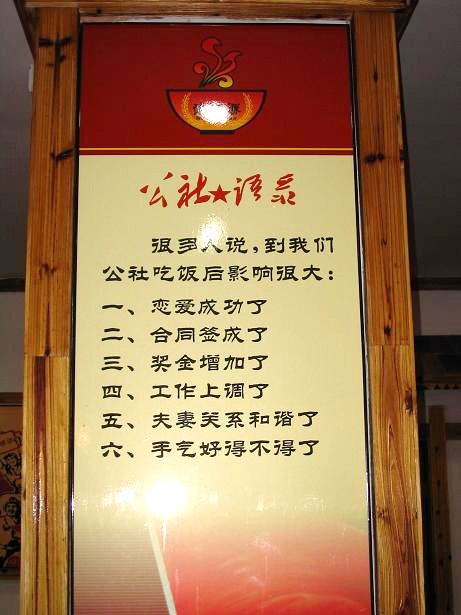 公社★语录
很多人说,到我们
公社吃饭后影响很大:
一、恋爱成功了
二、合同签成了
三、奖金增加了
四、工作上调了
五、夫妻关系和谐了
六、手气好得不得了